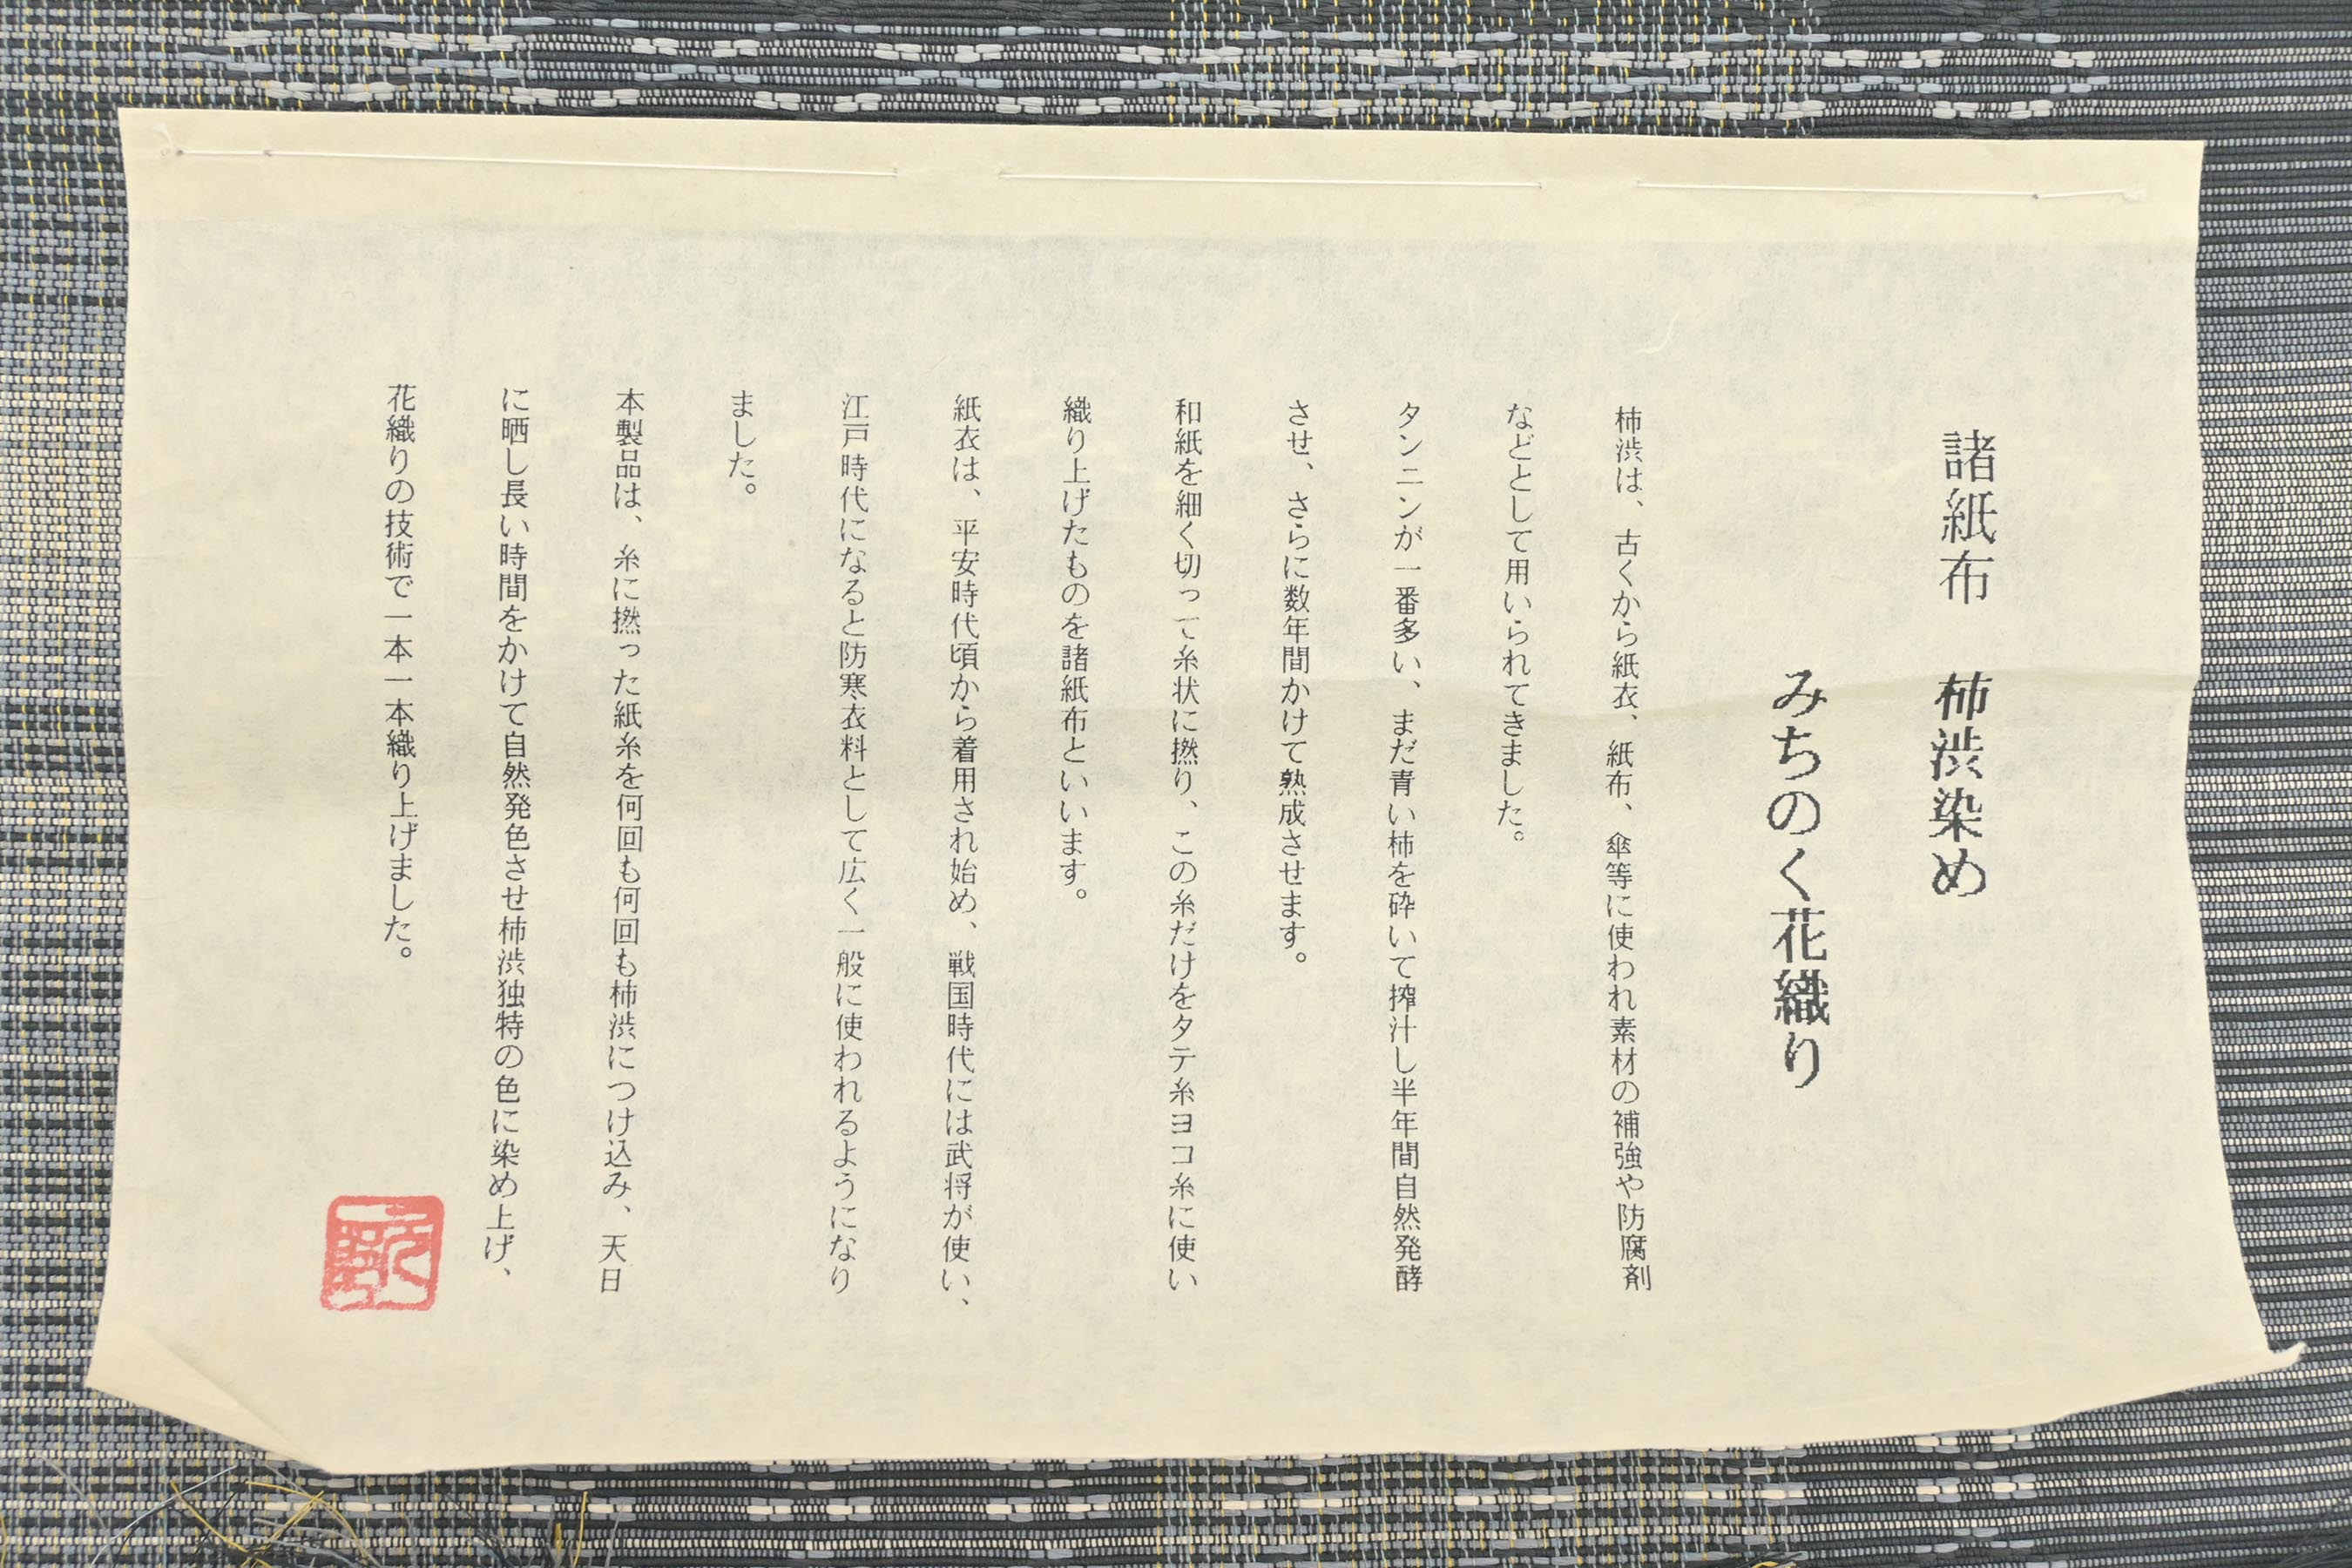 諸紙布　柿渋染め
みちのく花織り
柿渋は、古くから紙衣、紙布、傘等に使われ素材の補強や防腐剤
などとして用いられてきました。
タンニンが一番多い、まだ青い柿を砕いて搾汁し半年間自然発酵
させ、さらに数年間かけて熟成させます。
和紙を細く切って糸状に撚り、この糸だけをタテ糸ヨコ糸に使い
織り上げたものを諸紙布といいます。
紙衣は、平安時代頃から着用され始め、戦国時代には武将が使い、
江戸時代になると防寒衣料として広く一般に使われるようになり
ました。
本製品は、糸に撚った紙糸を何回も何回も柿渋につけ込み、天日
に晒し長い時間をかけて自然発色させ柿渋独特の色に染め上げ、
花織りの技術で一本一本織り上げました。